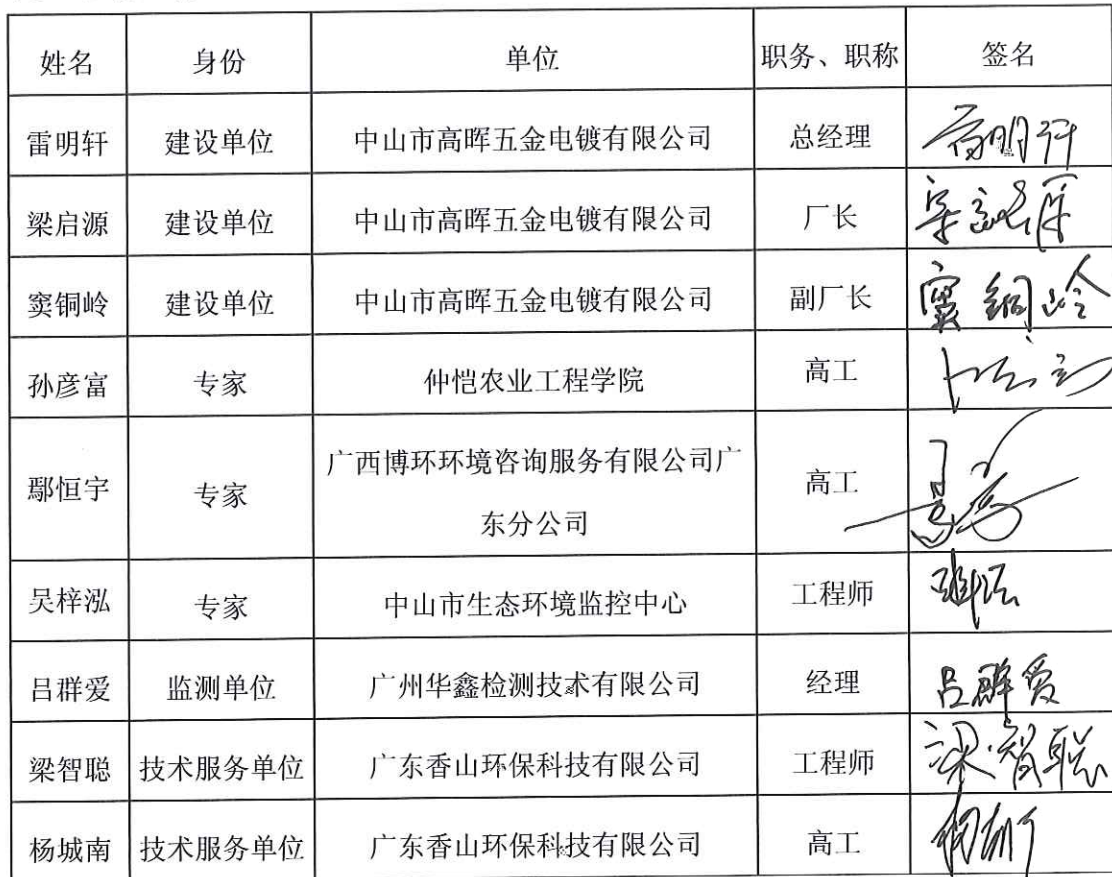 姓名 身份 单位 职务、职称 签名
雷明轩 建设单位 中山市高晖五金电镀有限公司 总经理
梁启源 建设单位 中山市高晖五金电镀有限公司 厂长
窦铜岭 建设单位 中山市高晖五金电镀有限公司 副厂长 窦铜岭
孙彦富 专家 仲恺农业工程学院 高工
鄢恒宇 专家 广西博环环境咨询服务有限公司广 高工
东分公司
吴梓泓 专家 中山市生态环境监控中心 工程师
吕群爱 监测单位 广州华鑫检测技术有限公司 经理 吕群爱
梁智聪 技术服务单位 广东香山环保科技有限公司 工程师 梁智聪
杨城南 技术服务单位 广东香山环保科技有限公司 高工